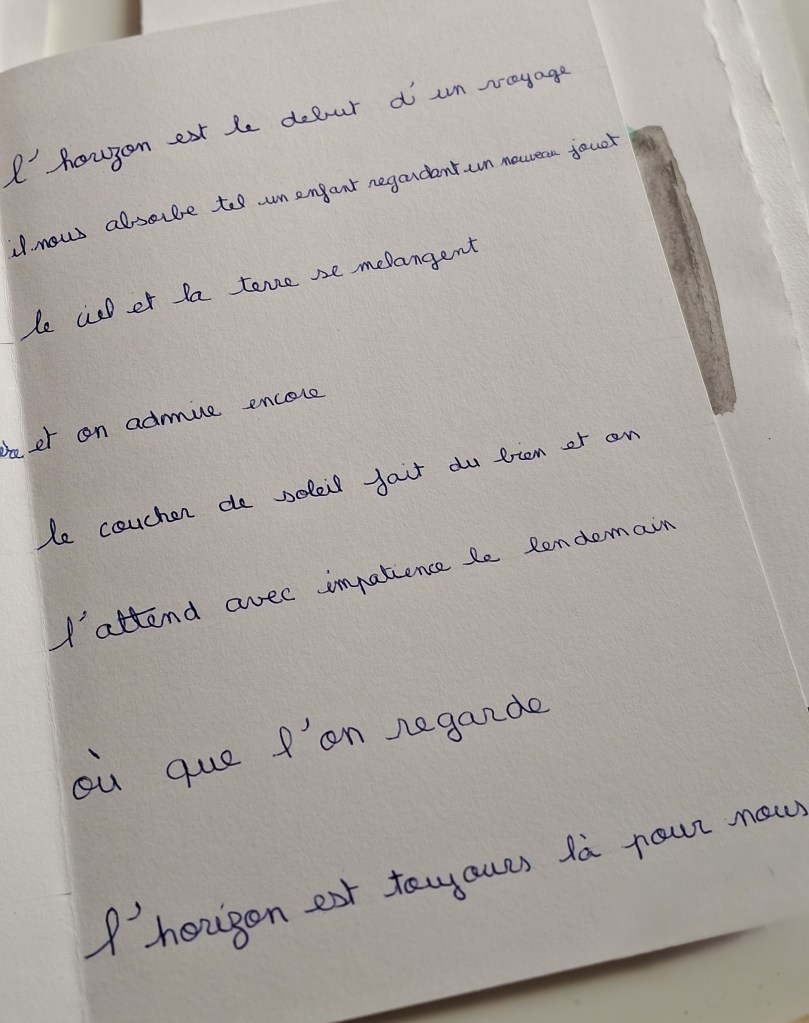 l'horizon est le debut d'un voyage
il nous absorbe tel un enfant regardant un nouveau jouet
le ciel et la terre se melangent
et on admire encore
le coucher de soleil fait du bien et on
l'attend avec impatience le lendemain
où que l'on regarde
l'horizon est toujours là pour nous